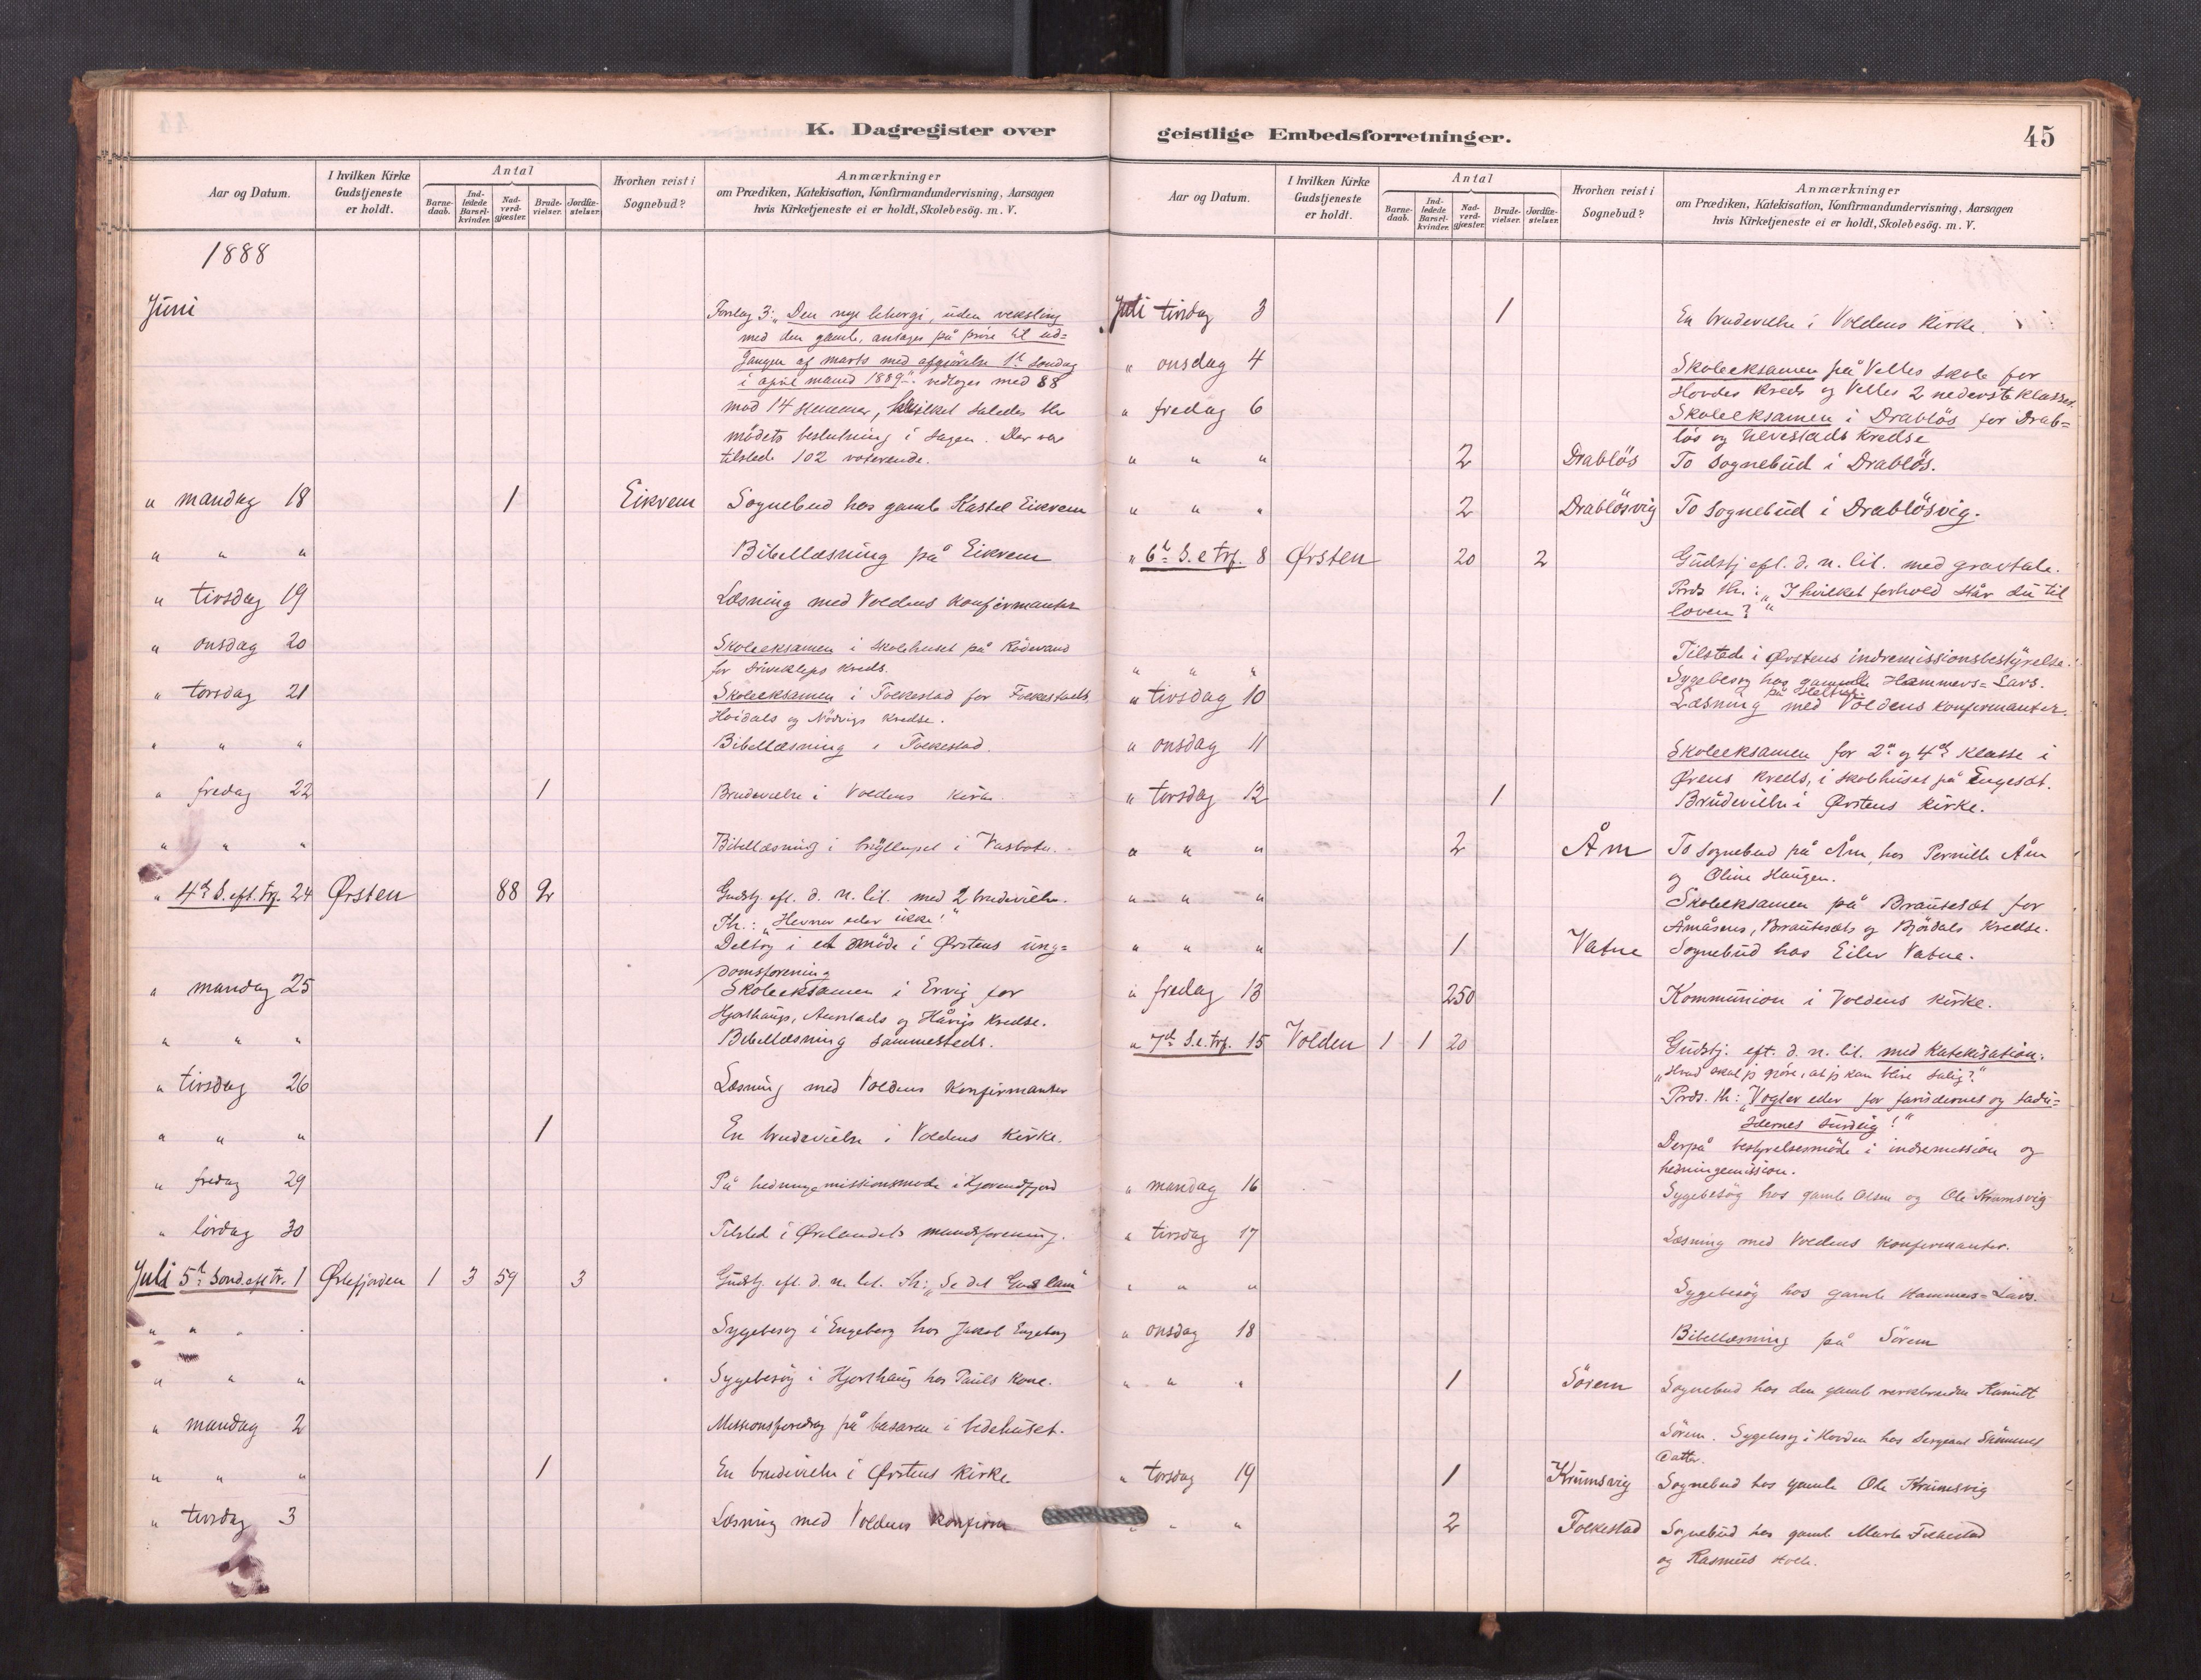 K. Dagregister over
Aar og Datum.
I hvilken Kirke
Gudstjeneste
er holdt.
Antal
Barne-
daab.
Ind-
ledede
Barsel-
kvinder.
Nad-
verd-
gjæster.
Brude-
vielser.
Jordfæ-
stelser.
Hvorhen reist i
Sognebud?
Anmærkninger
om Prædiken, Katekisation, Konfirmandundervisning, Aarsagen
hvis Kirketjeneste ei er holdt, Skolebesög. m. V.
1888
Juni
Forslag 3: "Den nye liturgi, uden veksling
med den gamle, antages på prøve til ud-
gangen af marts med afgjörelse 1st søndag
i april maned 1889". vedtoges med 88
mod 14 stemmer, hvilket saledes blev
mödets beslutning i sagen. Der var
tilstede 102 voterende.
" mandag 18 1 Eikrem Sognebud hos gamle Kastel Eikrem
" " " Bibellæsning på Eikrem
" tirsdag 19 Læsning med Voldens konfirmanter
" onsdag 20 Skoleeksamen i skolehuset på Rödvand
for kreds.
" torsdag 21 Skoleeksamen i Folkestad for Folkestads,
Hoidals og Nödvigs kredse.
" " " Bibellæsning i Folkestad.
" fredag 22 1 Brudevielse i Voldens kirke.
" " " Bibellæsning i bryllupet i Vasbotn.
" 4de S. eft. trf. 24 Ørsten 88 2 Gudstj. eft. d. n. lit. med 2 brudevielser.
Th.: "Hevner eller ikke!"
Deltog i et möde i Ørstens ung=
domsforening
" mandag 25 Skoleeksamen i Ervig for
Hjorthaugs, Aurstads og Håvigs kredse.
" " " Bibellæsning sammesteds.
" tirsdag 26 Læsning med Voldens konfirmanter
" " " 1 En brudevielse i Voldens kirke.
" fredag 29 På hedningemissionsmöde i Hjörendfjord
" lördag 30 Tilsted i Ørslandets mandsforening.
Juli 5te Sönd. eft tr. 1 Ørstefjorden 1 3 59 3 Gudstj. eft. d. n. lit. th: "Se det Guds lam"
" " " Sygebesög i Engeberg hos Jakob Engeberg
" " " Sygebesög i Hjorthaug hos Pauls kone.
" mandag 2 Missionsforedrag på basaren i bedehuset.
" " " 1 En brudevielse i Ørstens kirke.
" tirsdag 3 Læsning med Voldens konfirm
geistlige Embedsforretninger.
45
Aar og Datum.
I hvilken Kirke
Gudstjeneste
er holdt.
Antal
Barne-
daab.
Ind-
ledede
Barsel-
kvinder.
Nad-
verd-
gjæster.
Brude-
vielser.
Jordfæ-
stelser.
Hvorhen reist i
Sognebud?
Anmærkninger
om Prædiken, Katekisation, Konfirmandundervisning, Aarsagen
hvis Kirketjeneste ei er holdt, Skolebesög. m. V.
Juli tirsdag 3 1 En brudevielse i Voldens kirke.
" onsdag 4 Skoleeksamen på Velles skole for
Hovdes kreds og Velles 2 nederste klasser.
" fredag 6 Skoleeksamen i Drablös for Drab=
lös og Ulvestads kredse
" " " 2 Drablös To sognebud i Drablös.
" " " 2 Drablösvig To sognebud i Drablösvig.
" 6te S. e trf. 8 Ørsten 20 2 Gudstj eft. d. n. lit. med gravtale.
Præd. th.: "I hvilket forhold står du til
loven?"
Tilstede i Ørstens indremissionsbestyrelse.
" " " Sygebesög hos gamle Hammers=Lars.
" tirsdag 10 Læsning med Voldens konfirmanter.
" onsdag 11 Skoleeksamen for 2den og 4de klasse i
Ørens kreds, i skolehuset på Engeset.
" torsdag 12 1 Brudevielse i Ørstens kirke.
" " " 2 Åm To sognebud på Åm, hos Pernille Åm
og Oline Haugen.
" " " Skoleeksamen på Brautesæt for
Åmåsens, Brautesæts og Björdals kredse.
" " " 1 Vatne Sognebud hos Eilev Vatne.
" fredag 13 250 Kommunion i Voldens kirke.
" 7de S. e. trf. 15 Volden 1 1 20 Gudstj. eft. d. n. lit. med katekisation.
"Hvad skal jeg gjøre, at jeg kan blive salig?"
Præd. th: "Vogter eder for farisæernes og sadu=
cæernes surdeig!"
Derpå bestyrelsesmöde i indremission og
hedningemission.
" mandag 16 Sygebesög hos gamle Olsen og Ole Krumsvig
" tirsdag 17 Læsning med Voldens konfirmanter.
" " " Sygebesög hos gamle Hammers=Lars.
" onsdag 18 Bibellæsning på Sörem
" " " 1 Sörem Sognebud hos den gamle verkbrudne
Sörem. Sygebesög i Hovden hos Sergeant
datter.
" torsdag 19 1 Krumsvig Sognebud hos gamle Ole Krumsvig
" " " 2 Folkestad Sognebud hos gamle Folkestad
og Rasmus